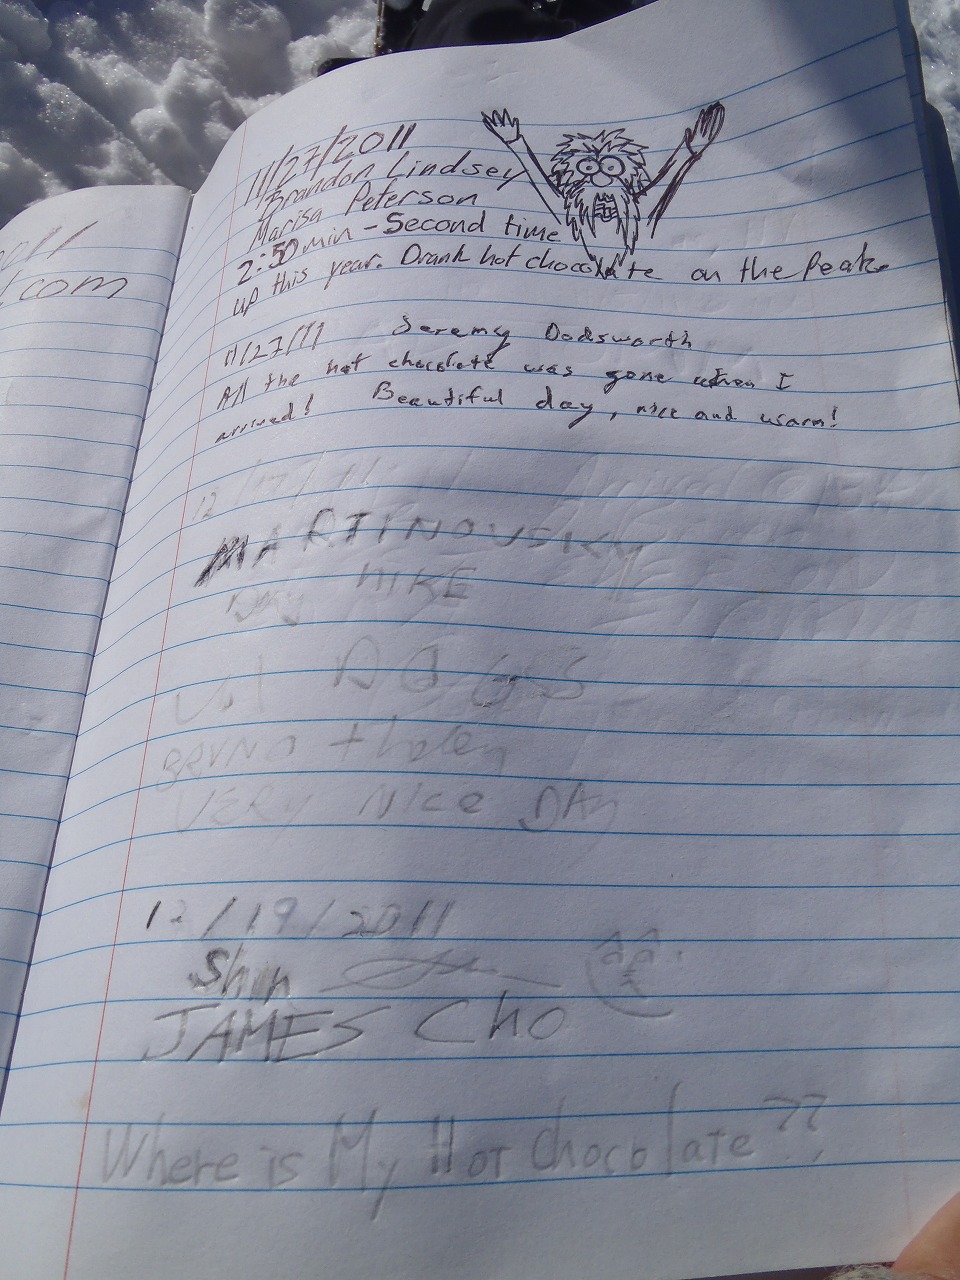 2011
.com
11/27/2011
Brandon Lindsey
Marisa Peterson
2:50 min - Second time
up this year. Drank hot chocolate on the Peak.
11/27/11 Jeremy Dodsworth
All the hot chocolate was gone when I
arrived! Beautiful day, nice and warm!
12/17/11
MARTINOVSKY
DAY HIKE
BRUNO + haley
VERY NICE DAY
12/19/2011
Shin
JAMES CHO
Where is My Hot chocolate??